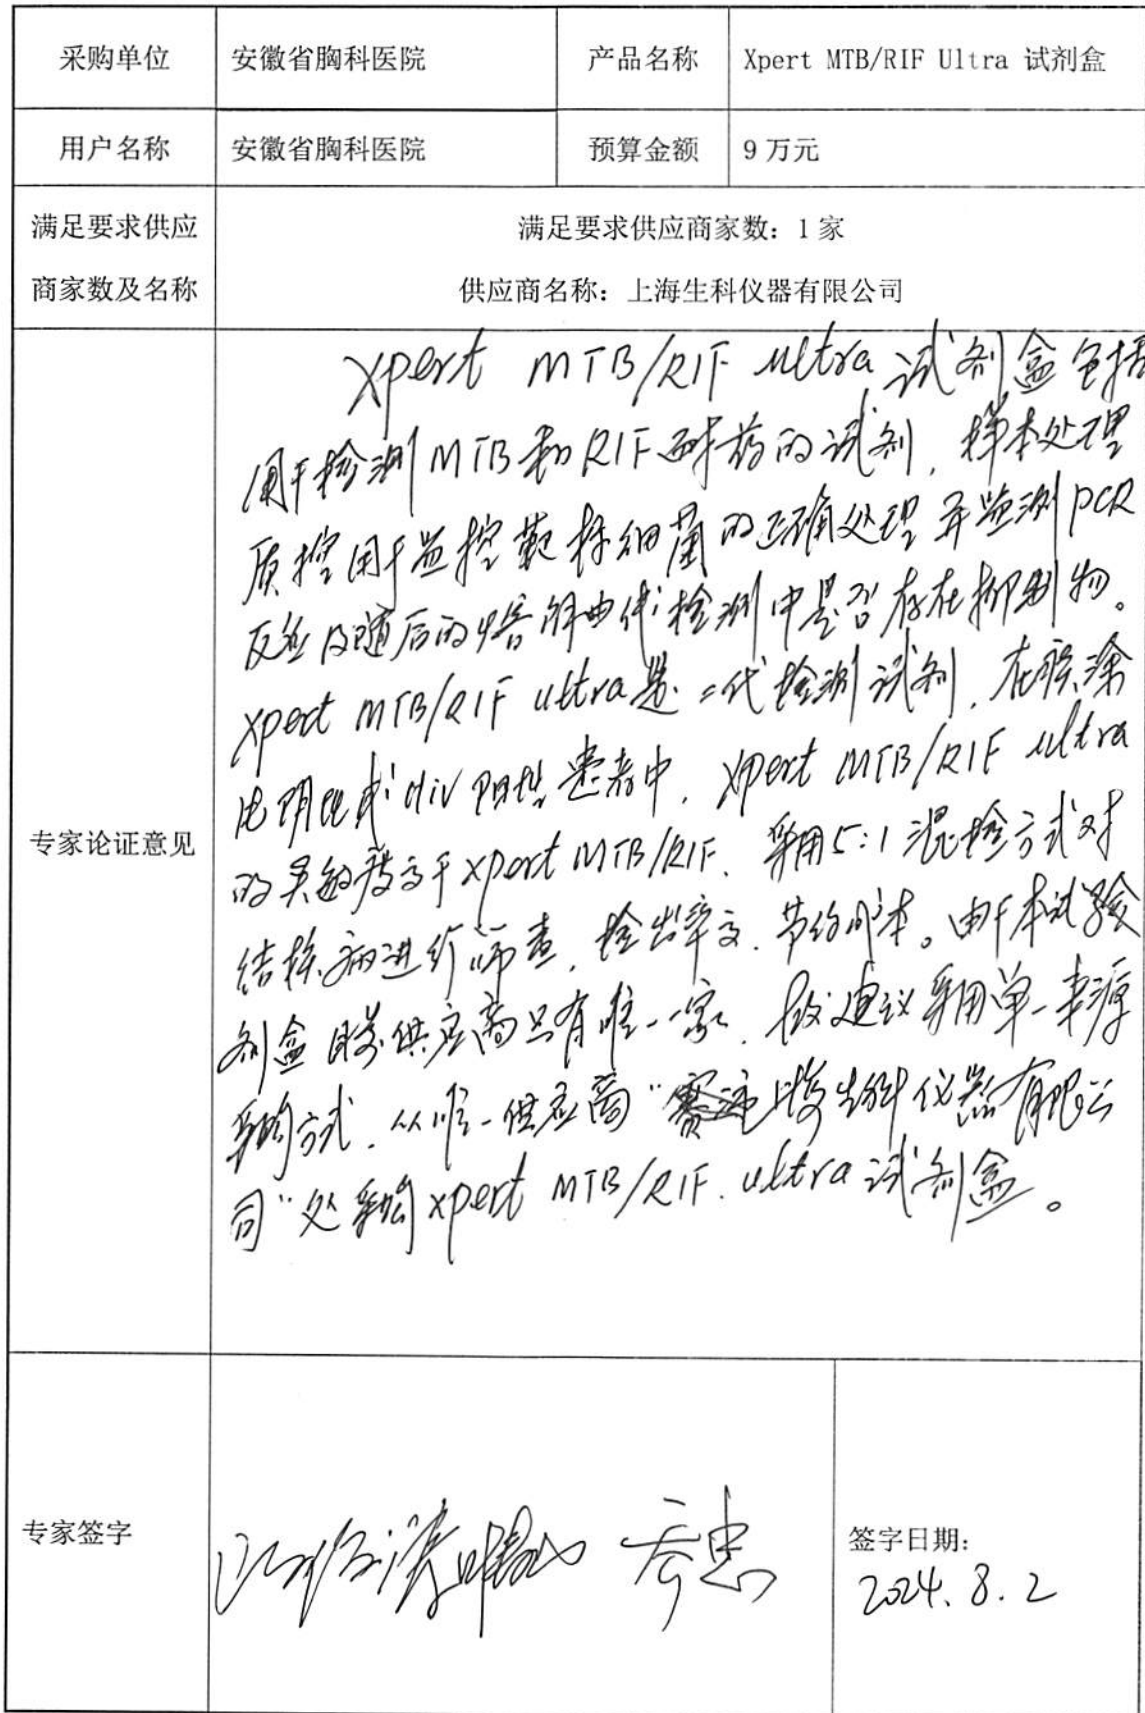 采购单位 安徽省胸科医院 产品名称 Xpert MTB/RIF Ultra 试剂盒
用户名称 安徽省胸科医院 预算金额 9万元
满足要求供应商家数及名称
满足要求供应商家数：1家
供应商名称：上海生科仪器有限公司
专家论证意见
Xpert MTB/RIF ultra 试剂盒包括
用于检测MTB和RIF耐药的试剂，样本处理
质控用于监控靶标细菌的正确处理并监测PCR
反应及随后的熔解曲线检测中是否存在抑制物。
Xpert MTB/RIF ultra是二代检测试剂，在痰涂
片阴性或Hiv阳性患者中，Xpert MTB/RIF ultra
的灵敏度高于Xpert MTB/RIF. 采用5:1混检方式对
结核病进行筛查，检出率高，节约成本。由于本试验
剂盒 供应商只有唯一一家，故建议采用单一来源
采购方式，从唯一供应商“上海生科仪器有限公
司”处采购Xpert MTB/RIF. ultra试剂盒。
专家签字
签字日期：
2024.8.2